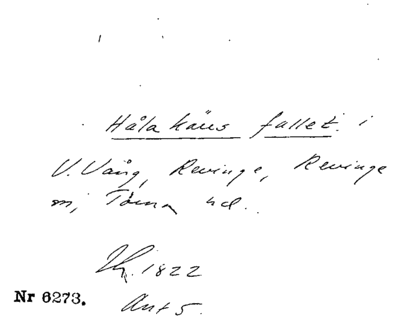 Håla käns fallet. i
V. Vång, Revinge, Revinge
sn, Torna hd.
1822
Nr 6273.
Akt 5.